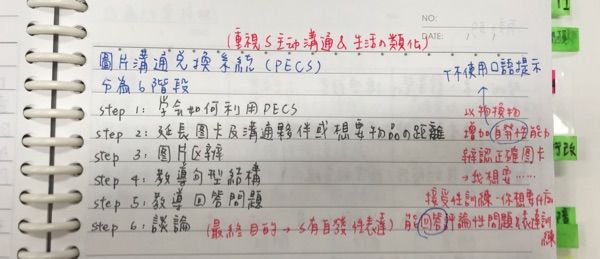 NO:
DATE: / /
(重視S主动溝通&生活の類化)
圖片溝通兌換系統(PECS)
分為6階段
T不使用口語提示
step 1: 学会如何利用PECS 以物換物
step 2: 延長圖卡及溝通夥伴或想要物品の距離 增加自發性能力
step 3: 圖片区辨 辩認正確圖卡
step 4: 教導句型結構 →我想要……
step 5: 教導回答問題 接受性訓練-你想要什麼
step 6: 談論 (最終目的→S有自發性表達) 能回答評論性問題&表達訓練